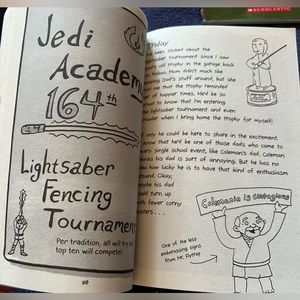 SCHOLASTIC
Jedi
Academy
164th
Lightsaber
Fencing
Tournament
Per tradition, all will try out
top ten will compete!
50
been stoked about the
tournament since I saw
old trophy in the garage back
Naboo. Mom didn't much like
Dad's stuff around, but she
me that the trophy reminded
happier times. He'd be so
proud to know that I'm entering
lightsaber tournament and even
when I bring home the trophy for myself!
only he could be here to share in the excitement.
know that he'd be one of those dads who came to
every single school event, like Coleman's dad. Coleman
thinks his dad is sort of annoying. But he has no
idea how lucky he is to have that kind of enthusiasm
around. Okay,
maybe his dad
could tune it up
with fewer corny
posters...
Colemania is Contagious
One of the less
embarrassing signs
from Mr. Flytrop